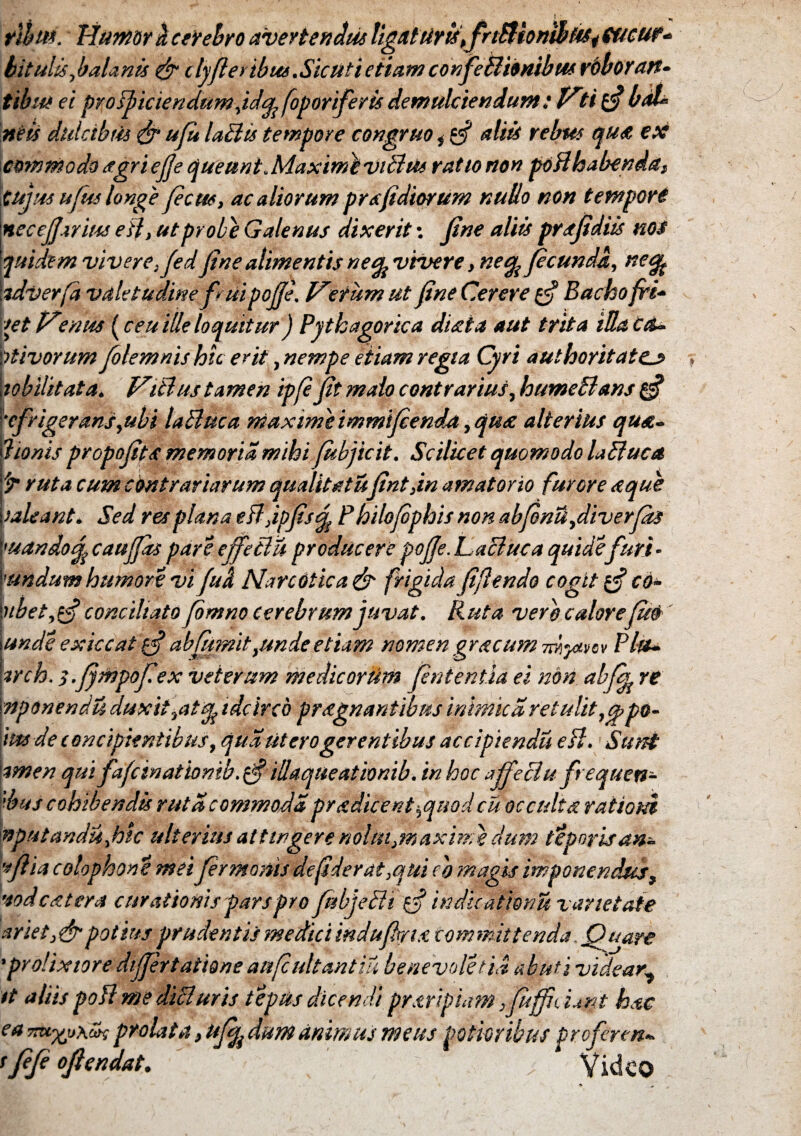 ribus. Humor à cerebro avertendus ligaturis, frictionibus, cucur-
bitulis, balanis & clysteribus. Sicuti etiam confectionibus roboran-
tibus ei prospiciendum, idq; soporiferis demulciendum: Uti & bal-
neis dulcibus & usu lactis tempore congruo, & aliis rebus quæ ex
commodo ægri esse queunt. Maximè victus ratio non posthabenda,
cujus usus longè secus, ac aliorum præsidiorum nullo non tempore
necessarius est, ut probè Galenus dixerit: sine aliis præsidiis nos
quidem vivere, sed sine alimentis neq; vivere, neq; secundâ, neq;
adversa valetudine frui posse. Verùm ut sine Cerere & Bacho fri-
get Venus (ceu ille loquitur) Pythagorica diæta aut trita illa ca-
ptivorum solemnis hîc erit, nempe etiam regia Cyri authoritate
nobilitata. Victus tamen ipse sit malo contrarius, humectans &
refrigerans, ubi lactuca maximè immiscenda, quæ alterius quæ-
stionis propositæ memoriã mihi subjicit. Scilicet quomodo lactuca
& ruta cum contrariarum qualitatũ sint, in amatorio furore æque
valeant. Sed res plana est, ipsisq; Philosophis non absonũ, diversas
quandoq; caussas parẽ effectũ producere posse. Lactuca quidẽ furi-
bundum humorẽ vi suâ Narcotica & frigida sistendo cogit & co-
hibet, & conciliato somno cerebrum juvat. Ruta verò calore suo
undẽ exiccat & absumit, unde etiam nomen græcum πήγανον Plu-
tarch. 3. sympos. ex veterum medicorũm sententia ei non absq; re
imponendũ duxit, atq; idcircò prægnantibus inimicã retulit, q; po-
tius de concipientibus, quã utero gerentibus accipiendũ est. Sunt
tamen qui fascinationib. & illaqueationib. in hoc affectu frequen-
tibus cohibendis rutã commodã prædicent, quod cũ occultæ rationi
imputandũ, hîc ulterius attingere nolui, maximè dum tẽporis an-
gustia colophonẽ mei sermonis desiderat, qui eò magis imponendus,
quod cætera curationis pars pro subjecti & indicationũ varietate
variet, & potius prudentis medici industriæ committenda. Quare
prolixiore dissertatione auscultantiũ benevolẽtiã abuti videar,
ut aliis post me dicturis tẽpus dicendi præripiam, sufficiant hæc
ea παχυλῶς prolata, usq; dum animus meus potioribus proferen-
s sese ostendat. Video